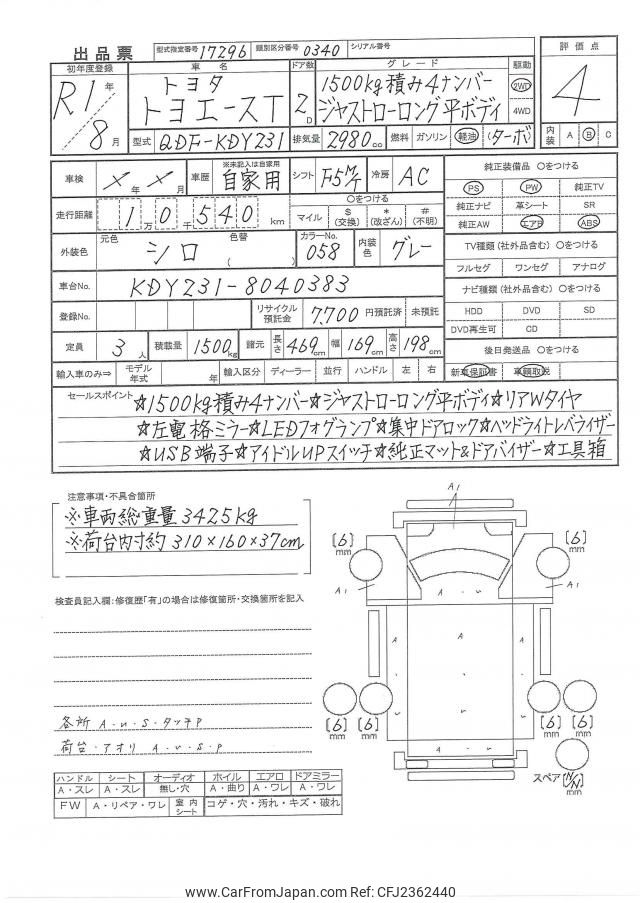 出品票 型式指定番号 17296 類別区分番号 0340 シリアル番号
初年度登録 車名 ドア数 グレード 駆動 評価点
R1年 トヨタ 1500kg積み4ナンバー 2WD
トヨエースT 2D ジャストローロング平ボディ 4WD 4
8月 型式 QDF-KDY231 排気量 2980cc 燃料 ガソリン 軽油 (ターボ) 内装 A B C
車検 ×年×月 車歴 ※未記入は自家用 自家用 シフト F5M/T 冷房 AC 純正装備品 ○をつける
PS PW 純正TV
走行距離 1万0千540km ○をつける
マイル $(交換) *(改ざん) #(不明) 純正ナビ 革シート SR
純正AW エアB ABS
外装色 元色 シロ 色替 ( ) カラーNo. 058 内装色 グレー TV種類(社外品含む) ○をつける
フルセグ ワンセグ アナログ
車台No. KDY231-8040383 ナビ種類(社外品含む) ○をつける
登録No. リサイクル預託金 7,700 円預託済 未預託 HDD DVD SD
DVD再生可 CD
定員 3人 積載量 1500kg 諸元 長さ 469cm 幅 169cm 高さ 198cm 後日発送品 ○をつける
輸入車のみ⇒ モデル年式 年 輸入区分 ディーラー 並行 ハンドル 左 右 新車保証書 車輌取説
セールスポイント ☆1500kg積み4ナンバー☆ジャストローロング平ボディ☆リアWタイヤ
☆左電格ミラー☆LEDフォグランプ☆集中ドアロック☆ヘッドライトレバライザー
☆USB端子☆アイドルUPスイッチ☆純正マット&ドアバイザー☆工具箱
注意事項・不具合箇所
※車両総重量3425kg
※荷台内寸約310×160×37cm
検査員記入欄:修復歴「有」の場合は修復箇所・交換箇所を記入
各所 A・u・S・タッチP
荷台・アオリ A・u・S・P
A1
[6]mm [6]mm
A1 A1
A・u
A A A
[6]mm [6]mm [6]mm [6]mm
スペア [N/N]mm
ハンドル シート オーディオ ホイル エアロ ドアミラー
A・スレ A・スレ 無し・穴 A・曲り A・ワレ A・ワレ
FW A・リペア・ワレ 室内シート コゲ・穴・汚れ・キズ・破れ
www.CarFromJapan.com Ref: CFJ2362440